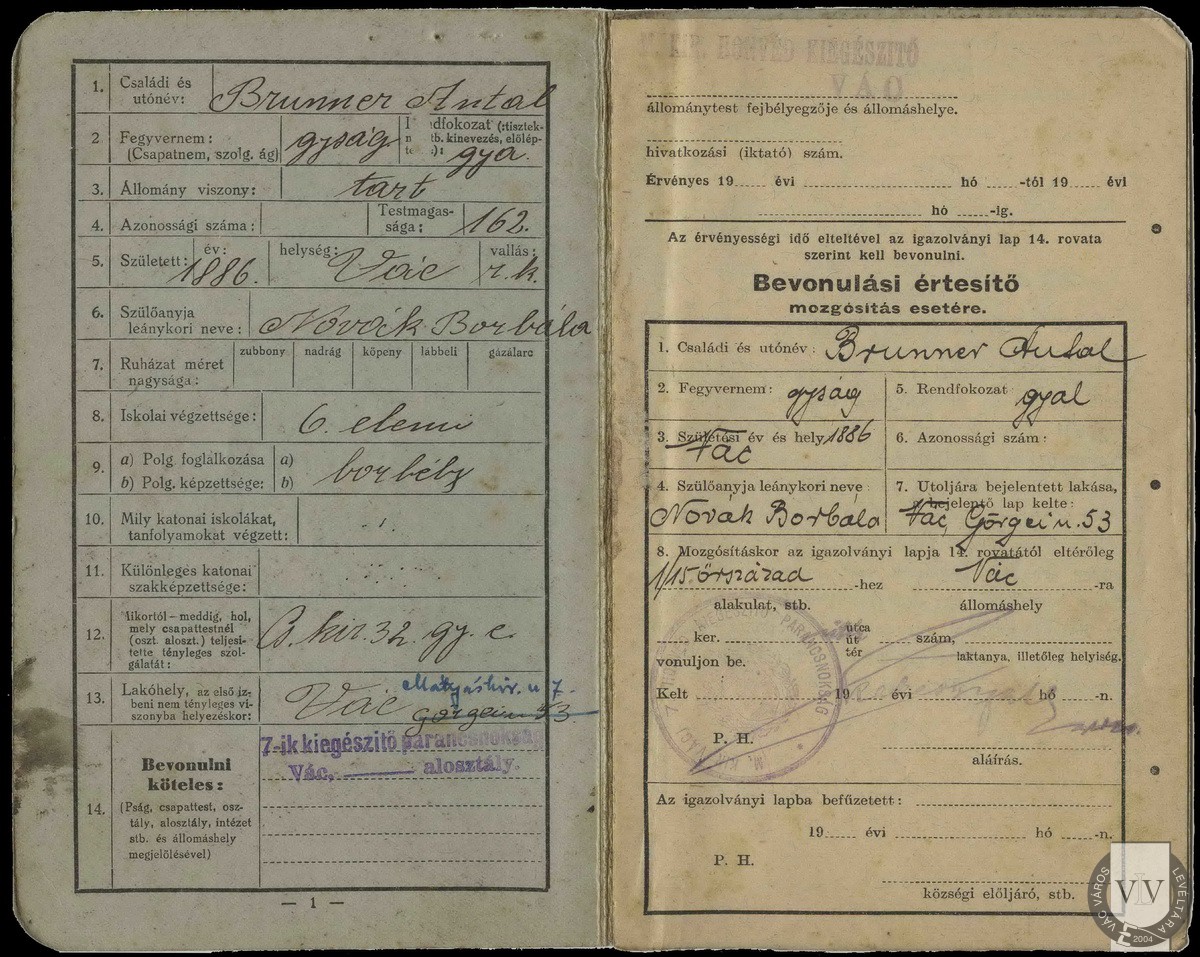 1. Családi és utónév: Brunner Antal
2 Fegyvernem: (Csapatnem, szolg. ág) gyság Rendfokozat (:tisztek- nél stb. kinevezés, előlép- tetés): gya.
3. Állomány viszony: tart
4. Azonossági száma: Testmagas- sága: 162.
5. Született: év: 1886. helység: Vác vallás: r. k.
6. Szülőanyja leánykori neve: Novák Borbála
7. Ruházat méret nagysága: zubbony nadrág köpeny lábbeli gázálarc
8. Iskolai végzettsége: 6. elemi
9. a) Polg. foglalkozása a) borbély
b) Polg. képzettsége: b)
10. Mily katonai iskolákat, tanfolyamokat végzett:
11. Különleges katonai szakképzettsége:
12. Mikortól – meddig, hol, mely csapattestnél (oszt. aloszt.) teljesi- tette tényleges szol- gálatát: cs. kir. 32. gy. e.
13. Lakóhely, az első íz- beni nem tényleges vi- szonyba helyezéskor: Vác Görgei u. 53 Mátyás kir. u 7.
14. Bevonulni köteles:
(Pság, csapattest, osz- tály, alosztály, intézet stb. és állomáshely megjelölésével)
7-ik kiegészitő parancsnokság
Vác, alosztály.
— 1 —
M. KIR. HONVÉD KIEGÉSZITŐ
VÁC
állománytest fejbélyegzője és állomáshelye.
hivatkozási (iktató) szám.
Érvényes 19 évi hó -tól 19 évi
hó -ig.
Az érvényességi idő elteltével az igazolványi lap 14. rovata
szerint kell bevonulni.
Bevonulási értesítő
mozgósítás esetére.
1. Családi és utónév: Brunner Antal
2. Fegyvernem: gyság 5. Rendfokozat gyal
3. Születési év és hely 1886 Vác 6. Azonossági szám:
4. Szülőanyja leánykori neve: Novák Borbála 7. Utoljára bejelentett lakása, a bejelentő lap kelte: Vác, Görgei u. 53
8. Mozgósításkor az igazolványi lapja 14. rovatától eltérőleg
1/15 őrszázad -hez Vác -ra
alakulat, stb. állomáshely
ker. utca út tér szám,
vonuljon be. laktanya, illetőleg helyiség.
Kelt 19 évi hó -n.
P. H.
aláírás.
Az igazolványi lapba befűzetett:
19 évi hó -n.
P. H.
községi elöljáró, stb.
VÁC VÁROS LEVÉLTÁRA
VLV
2004